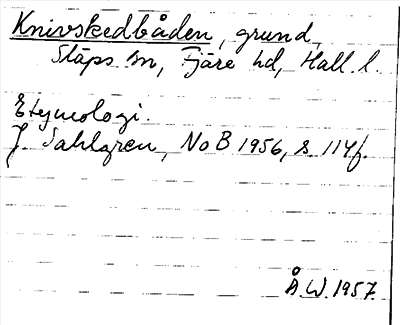 Knivskedbåden, grund,
Släps sn, Fjäre hd, Hall. l.
Etymologi.
J. Sahlgren, NoB 1956, s. 114f.
ÅW. 1957.